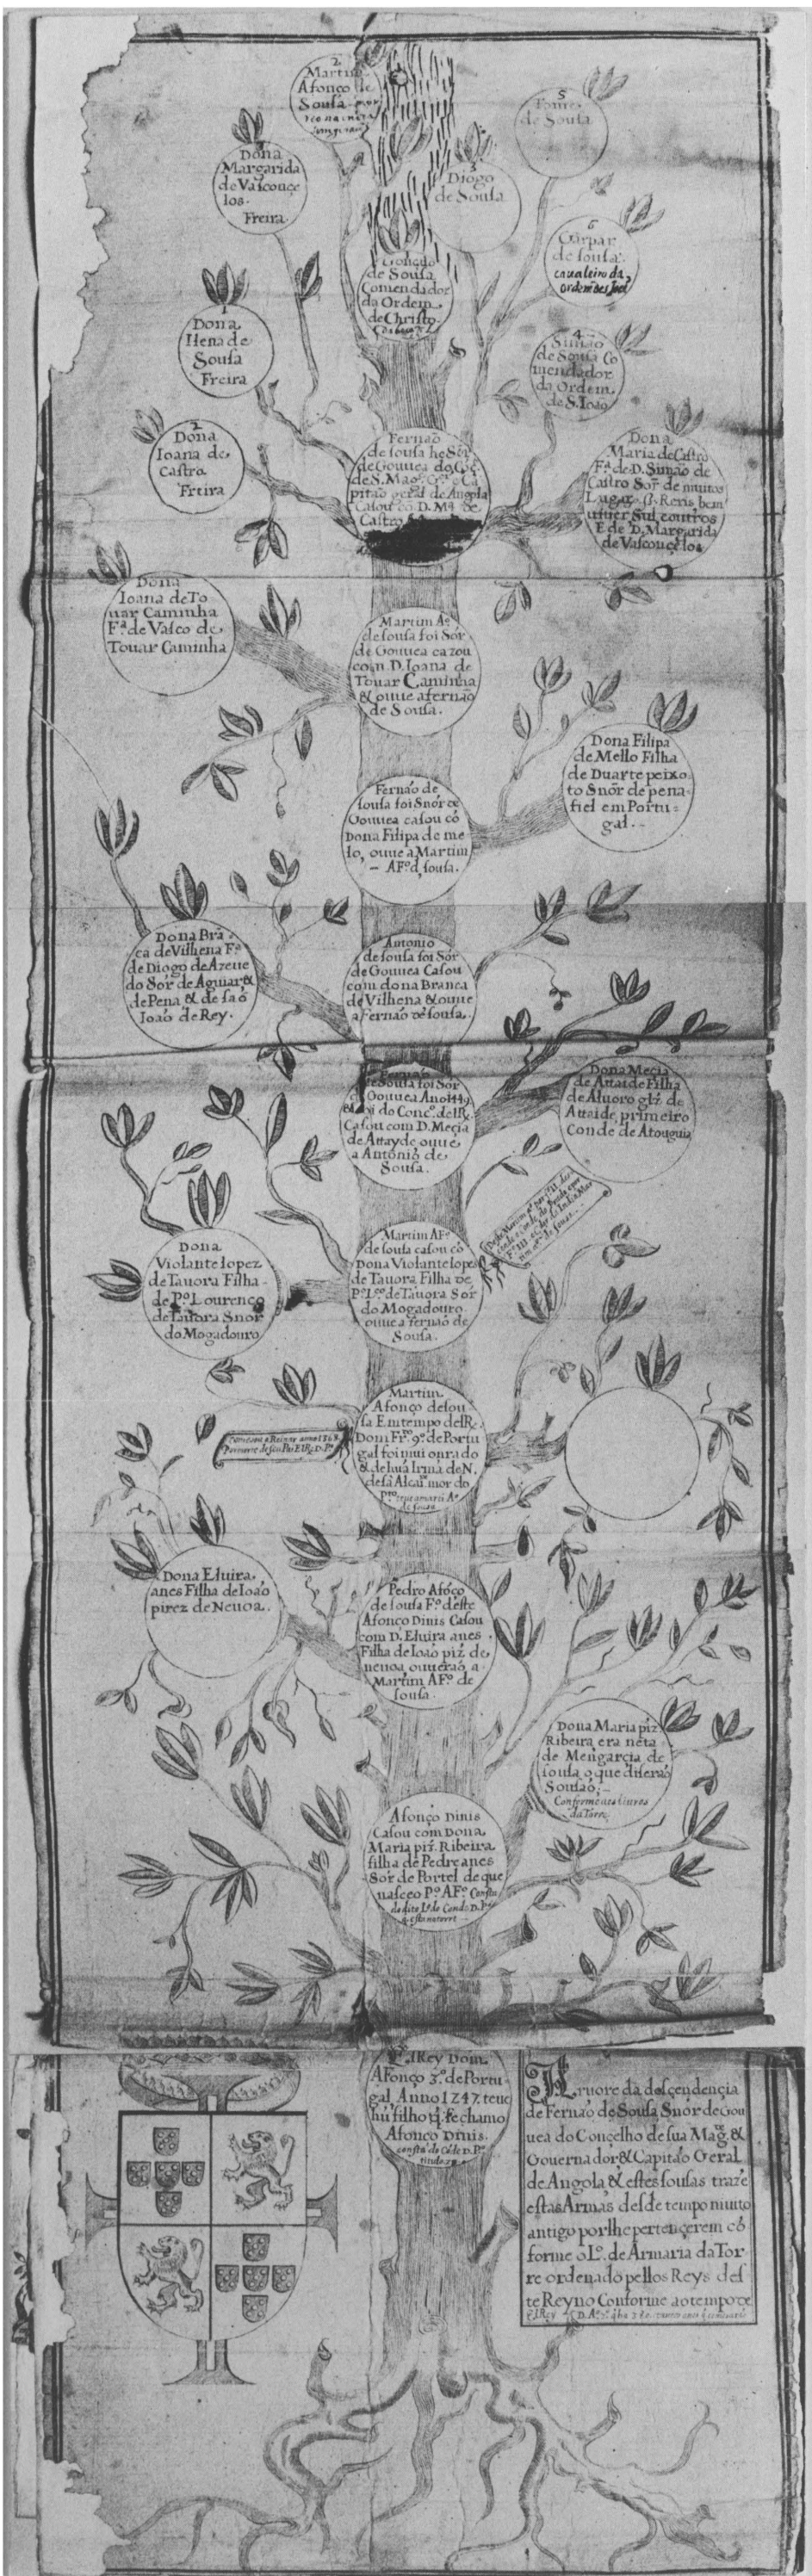 2
Martim
Afonço de
Sousa
5
de Sousa
Dona
Margarida
de Vasconçe
los.
Freira.
3
Diogo
de Sousa
6
Gaspar
de sousa.
caualeiro da
Gonçalo
de Sousa
Comendador
da Ordem
de Christo.
Dona
Ilena de
Sousa
Freira
4
Simão
de Sousa Co
mendador
da Ordem
de S. Ioão
2
Dona
Ioana de
Castro
Freira
Fernaõ
de sousa he Sor̃
de Gouuea do Cõç.
de S. Magᵉ. Gᵒʳ e Ca
pitaõ geral de Angola
Casou cõ D. Mᵃ de
Castro
Dona
Maria de Castro
Fᵃ. de D. Simão de
Castro Sor̃ de muitos
Lugares
E de D. Margarida
de Vasconçelos
Dona
Ioana de To
uar Caminha
Fᵃ. de Vasco de
Touar Caminha
Martim Aᵒ
de sousa foi Sõr
de Gouuea cazou
com D. Ioana de
Touar Caminha
& ouue a fernaõ
de Sousa.
Dona Filipa
de Mello Filha
de Duarte peixo
to Snor̃ de pena-
fiel em Portu=
gal.-
Fernaõ de
sousa foi Snor̃ de
Gouuea casou cõ
Dona Filipa de me
lo, ouue a Martim
- AFᵒ d, sousa.
Dona Brã
ca de Vilhena Fᵃ
de Diogo de Azeue
do Sor̃ de Aguiar, &
de Pena & de saõ
Ioaõ de Rey.
Antonio
de sousa foi Sõr
de Gouuea Casou
com dona Branca
de Vilhena & ouue
a Fernaõ de sousa.
Fernaõ
de Sousa foi Sõr
de Gouuea Ano 1449
& foi do Concᵒ. delRᵉ.
Casou com D. Meçia
de Attayde ouue
a Antonio de
Sousa.
Dona Meçia
de Attaide Filha
de Aluoro glz̃ de
Attaide, primeiro
Conde de Atouguia
Dona
Violante lopez
de Tauora Filha-
de Pᵒ Lourenço
de Tauora Snor
do Mogadouro
Martim AFᵒ
de sousa casou cõ
Dona Violante lopes
de Tauora Filha de
Pᵒ Lᶜᵒ de Tauora Sor̃
do Mogadouro
ouue a fernaõ de
Sousa.
Começou a Reinar anno 1368
Por morte de seu Pai ElRᵉ D. Pᵒ
Martim
Afonço de sou
sa Em tempo delRᵉ.
Dom Frᵈᵒ 9º de Portu
gal foi mui onrado
& de huã Irmã de N.
de sâ Alcaiᵈᵉ mor do
Pʳᵗᵒ
Dona Eluira,
anes Filha de Ioaõ
pirez de Neuoa.
Pedro Afoço
de sousa Fᵒ deste
Afonco Dinis Casou
com D. Eluira anes
Filha de Ioaõ piz̃ de
neuoa, ouueraõ a
Martim AFᵒ de
sousa.
Dona Maria piz̃
Ribeira, era neta
de Mengarçia de
sousa o que diseraõ
Sousaõ;-
Conforme aos liuros
da Torre
Afonço Dinis
Casou com Dona
Maria piz̃. Ribeira
filha de Pedreanes
Sor̃ de Portel de que
nasceo Pᵒ. AFᵒ. Consta
do dito Lᵒ do Conde D. Pᵒ
q. esta na torre
ElRey Dom
AFonço 3º. de Portu
gal, Anno 1247. teue
hũ filho q̃ se chamo
Afonco Dinis.
consta do Cõde D. Pᵒ
Aruore da desçendençia
de Fernaõ de Sousa Snõr de Gou
uea do Conçelho de sua Magᵈᵉ. &
Gouernador & Capitaõ Geral
de Angola & estes sousas trazẽ
estas Armas desde tempo muito
antigo por lhe pertençerem cõ
forme o Lᵒ. de Armaria da Tor-
re ordenado pellos Reys des
te Reyno Conforme ao tempo de